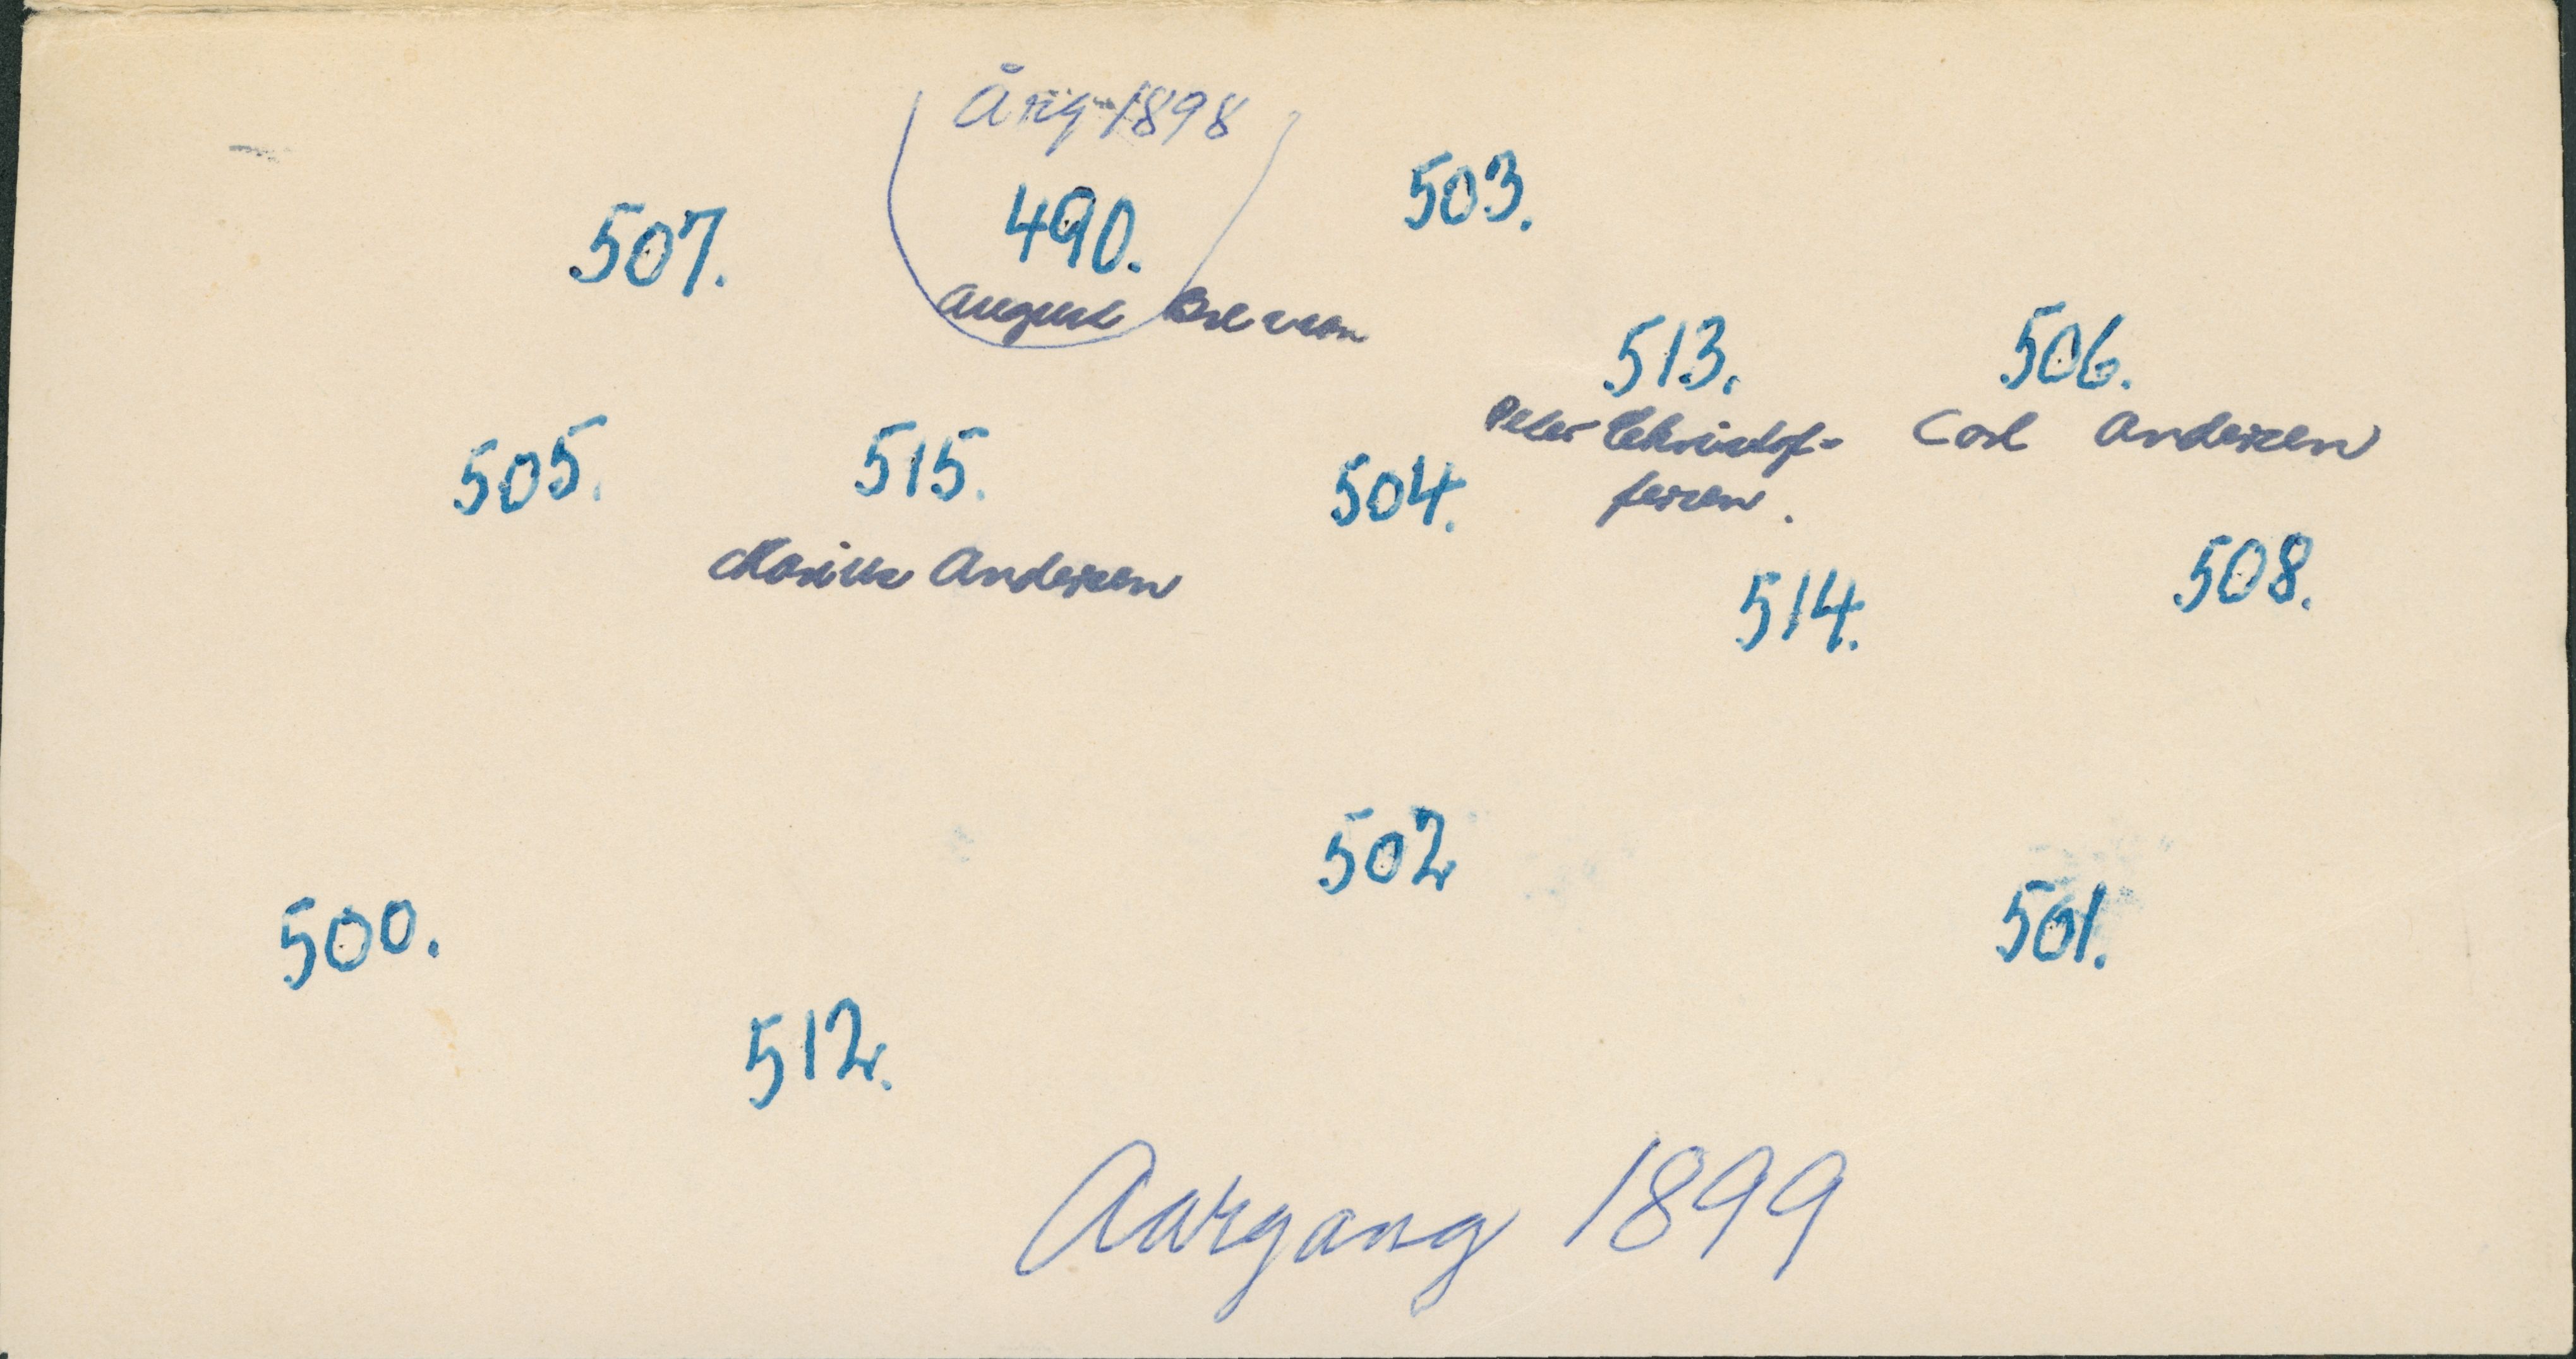 Årg. 1898
503.
507.
490.
August
513.
506.
Peter Christof-
Carl Andersen
505.
515.
504.
fersen.
Marius Andersen
508.
514.
502
500.
501.
512.
Aargang 1899